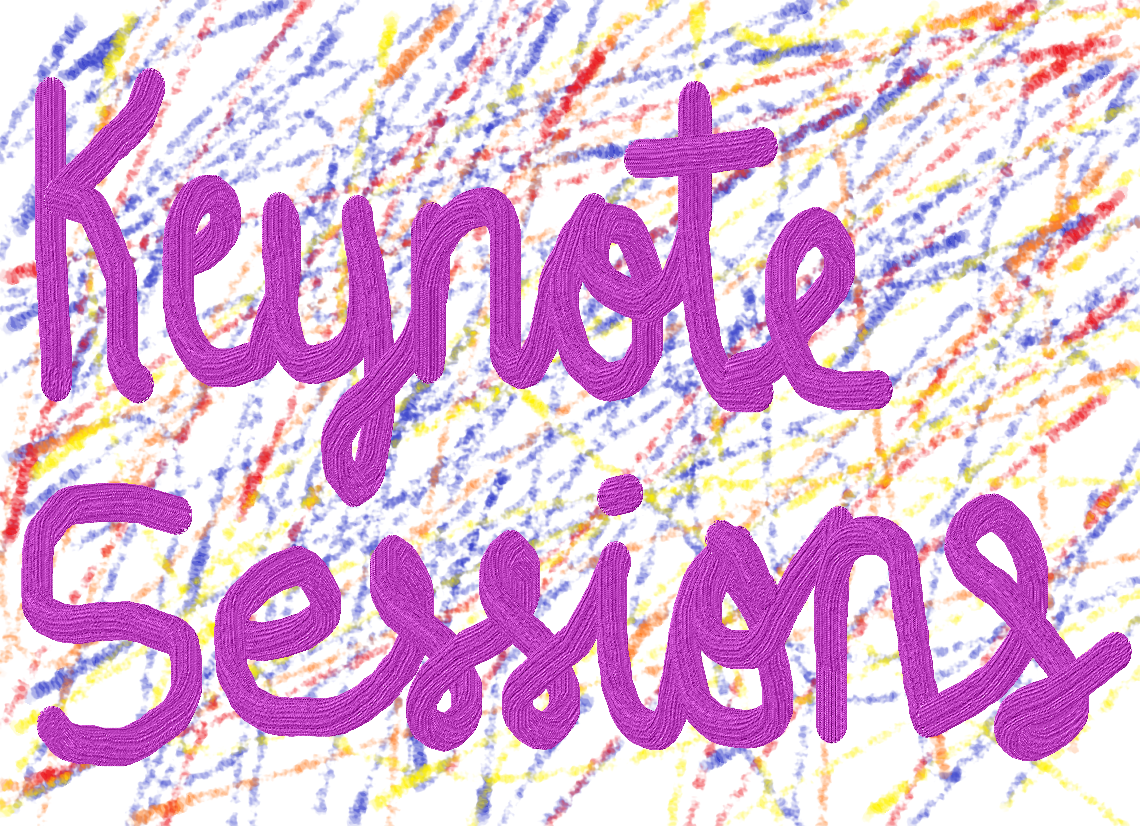 Keynote
Sessions